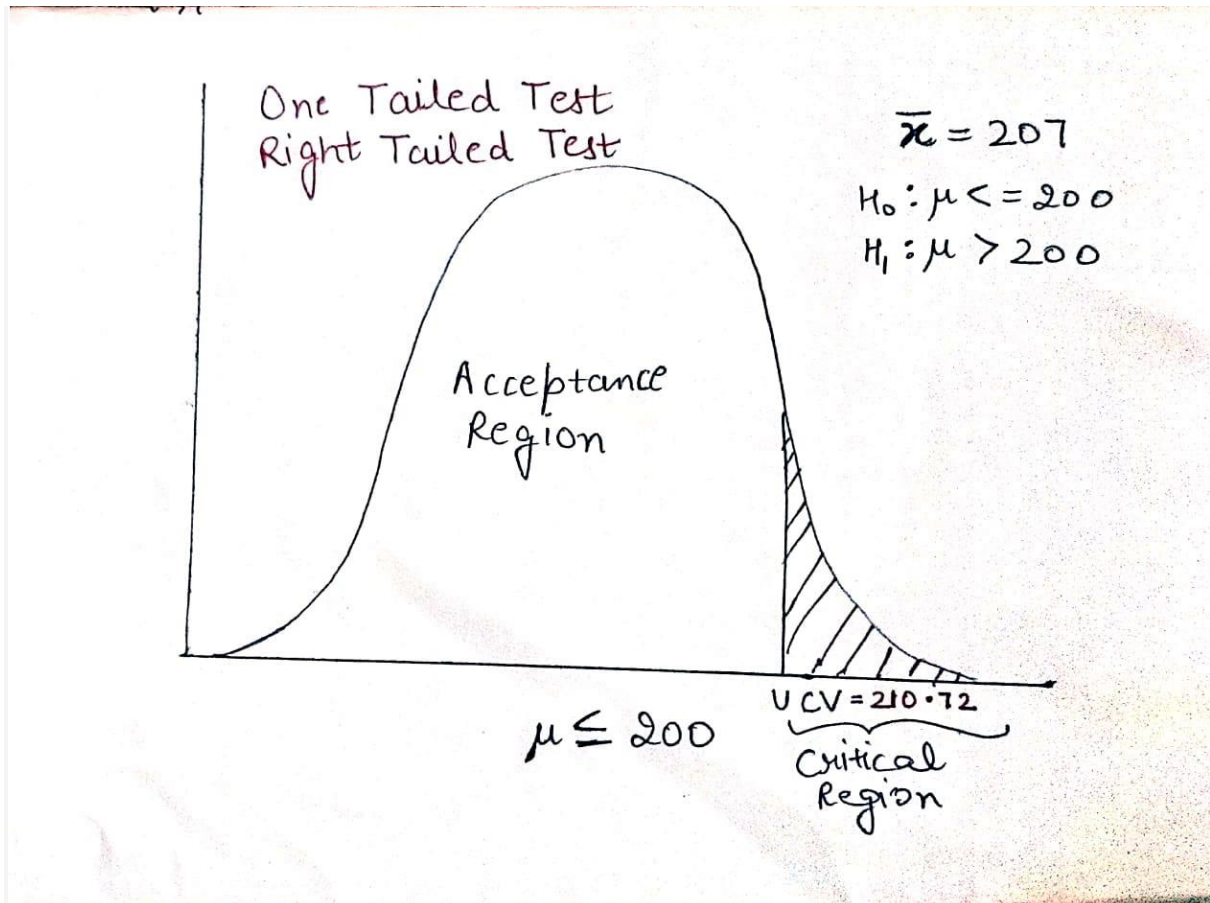 One Tailed Test
Right Tailed Test
x̅ = 207
H₀ : μ <= 200
H₁ : μ > 200
Acceptance
Region
UCV = 210.72
μ ≤ 200
Critical
Region